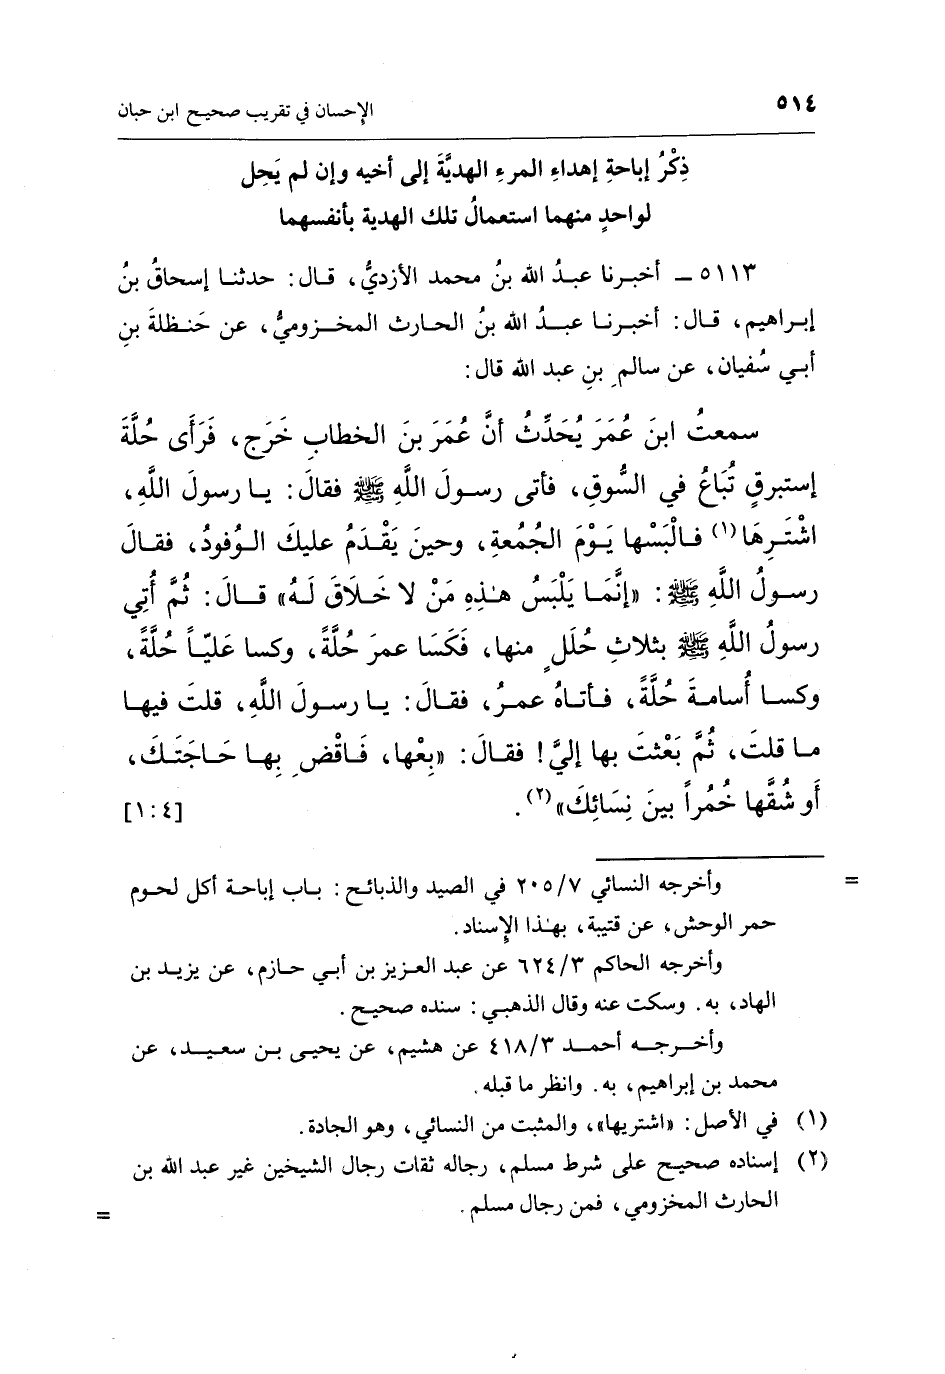 ٥١٤ الإحسان في تقريب صحيح ابن حبان
ذِكْرُ إباحةِ إهداءِ المرءِ الهديَّةَ إلى أخيه وإن لم يَحِل
لواحدٍ منهما استعمالُ تلك الهدية بأنفسهما
٥١١٣ ـ أخبرنا عبدُ الله بنُ محمد الأزديُّ، قال: حدثنا إسحاقُ بنُ
إبراهيم، قال: أخبرنا عبدُ الله بنُ الحارث المخزوميُّ، عن حَنظلةَ بنِ
أبي سُفيان، عن سالمِ بنِ عبد الله قال:
سمعتُ ابنَ عُمَرَ يُحَدِّثُ أنَّ عُمَرَ بنَ الخطابِ خَرَج، فَرَأى حُلَّةَ
إستبرقٍ تُبَاعُ في السُّوقِ، فأتى رسولَ اللَّهِ ﷺ فقالَ: يا رسولَ اللَّهِ،
اشْتَرِهَا(١) فالْبَسْها يَوْمَ الجُمُعةِ، وحينَ يَقْدَمُ عليكَ الوُفودُ، فقالَ
رسولُ اللَّهِ ﷺ: «إنَّمَا يَلْبَسُ هٰذِهِ مَنْ لا خَلَاقَ لَهُ» قالَ: ثُمَّ أُتِي
رسولُ اللَّهِ ﷺ بثلاثِ حُلَلٍ منها، فَكَسَا عمرَ حُلَّةً، وكسا عَليّاً حُلَّةً،
وكسا أُسامةَ حُلَّةً، فأتاهُ عمرُ، فقالَ: يا رسولَ اللَّهِ، قلتَ فيها
ما قلتَ، ثُمَّ بَعْثتَ بها إليَّ! فقالَ: «بِعْها، فَاقْضِ بِها حَاجَتَكَ،
أَو شُقَّها خُمُراً بينَ نِسَائِكَ»(٢). [١:٤]
= وأخرجه النسائي ٢٠٥/٧ في الصيد والذبائح: باب إباحة أكل لحوم
حمر الوحش، عن قتيبة، بهٰذا الإِسناد.
وأخرجه الحاكم ٦٢٤/٣ عن عبد العزيز بن أبي حازم، عن يزيد بن
الهاد، به. وسكت عنه وقال الذهبي: سنده صحيح.
وأخرجه أحمد ٤١٨/٣ عن هشيم، عن يحيى بن سعيد، عن
محمد بن إبراهيم، به. وانظر ما قبله.
(١) في الأصل: «اشتريها»، والمثبت من النسائي، وهو الجادة.
(٢) إسناده صحيح على شرط مسلم، رجاله ثقات رجال الشيخين غير عبد الله بن
الحارث المخزومي، فمن رجال مسلم. =